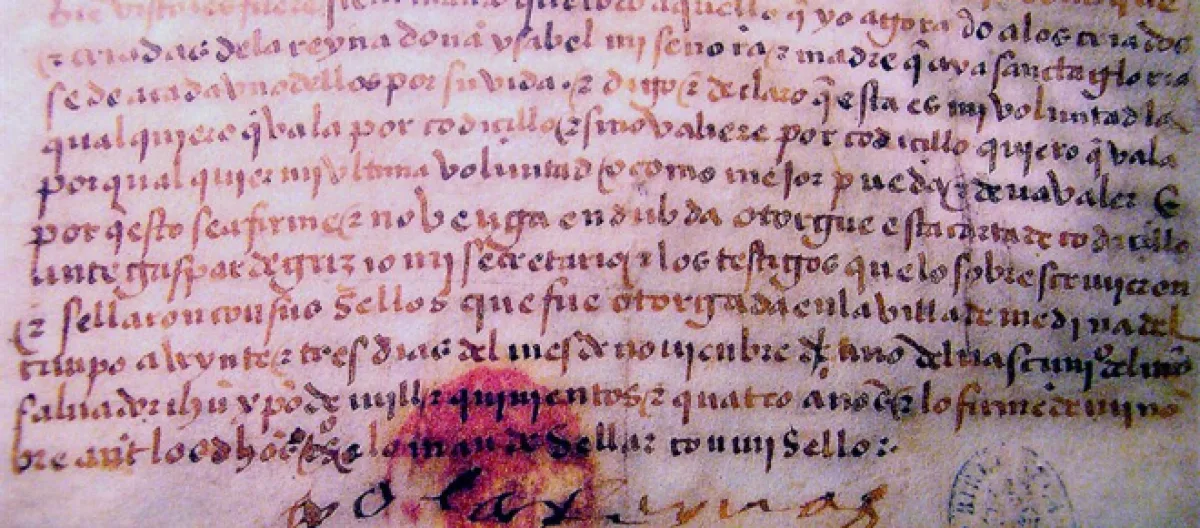 que todo aquello q̃ yo agora do a los criados
& criadas dela reyna doña ysabel mi señora & madre q̃ aya sancta gloria
se de a cada vno dellos por su vida. & digo & declaro q̃ esta es mi voluntad la
qual quiero q̃ vala por codicillo & si no valiere por codicillo quiero q̃ vala
por qual quier mi vltima voluntad o como mejor pueda & deua valer E
por q̃ esto sea firme & no venga en dubda otorgue esta carta de codicillo
ante gaspar de grizio mi secretario & los testigos que lo sobrescriuieron
& sellaron con sus sellos que fue otorgada en la villa de medina del
campo a veynte & tres dias del mes de nouienbre año del nascimi° del nr̃o
saluador ihũ xp̃o de mill & quinientos & quatro años & lo firme de mi nõ
bre & lo mande sellar con mi sello.
yo la reyna